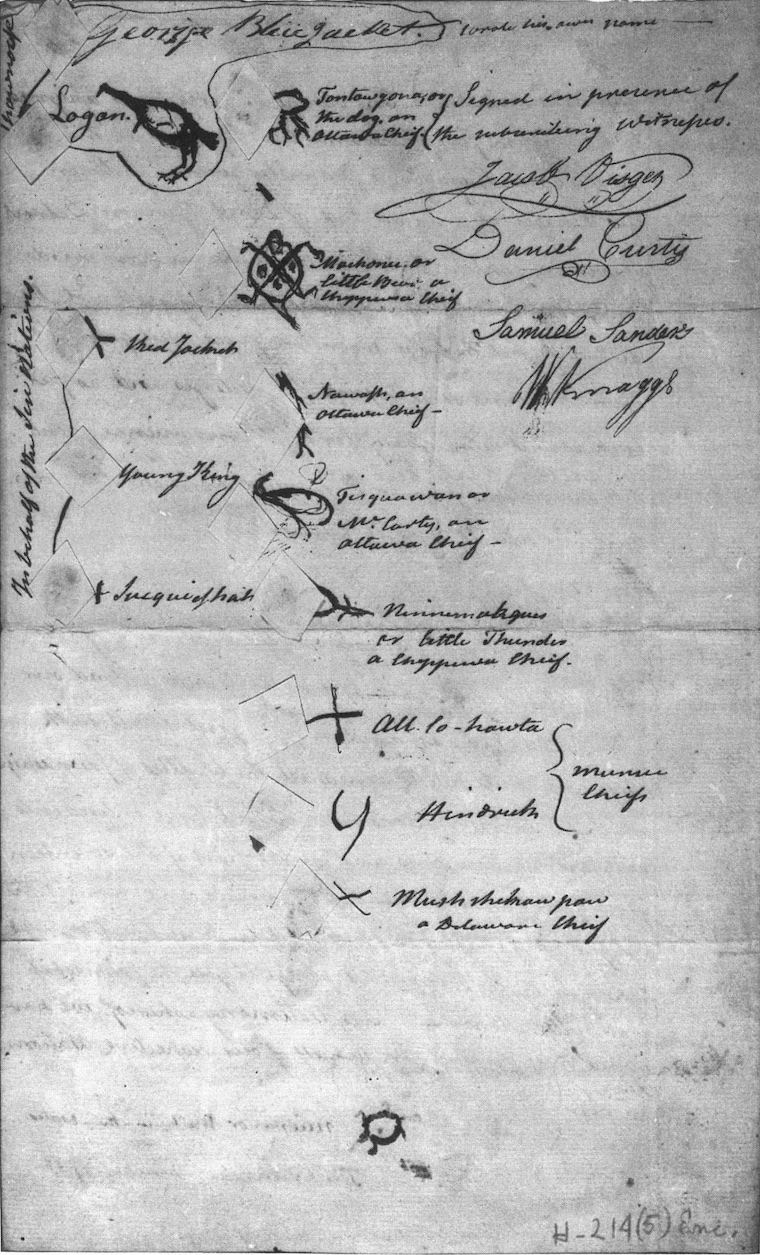 George Bluejacket. wrote his own name
Shawnoese
Logan.
Tontawgona, or
the dog, an
Ottawa Chief
Signed in presence of
the subscribing witnesses.
Jacob Visger
Daniel Curtis
Samuel Sanders
W Knaggs
Machonee or
little Bear a
Chippewa Chief
In behalf of the Six Nations.
Red Jacket
Nawash, an
Ottawa Chief -
Young King
Tisquawan or
Mc. Carty, an
Ottawa Chief -
Ninnemahques
or little Thunder
a Chippewa Chief.
All. Co-howta
Hindrick
Munsee
Chiefs
a Delaware Chief
H-214(5) Enc.